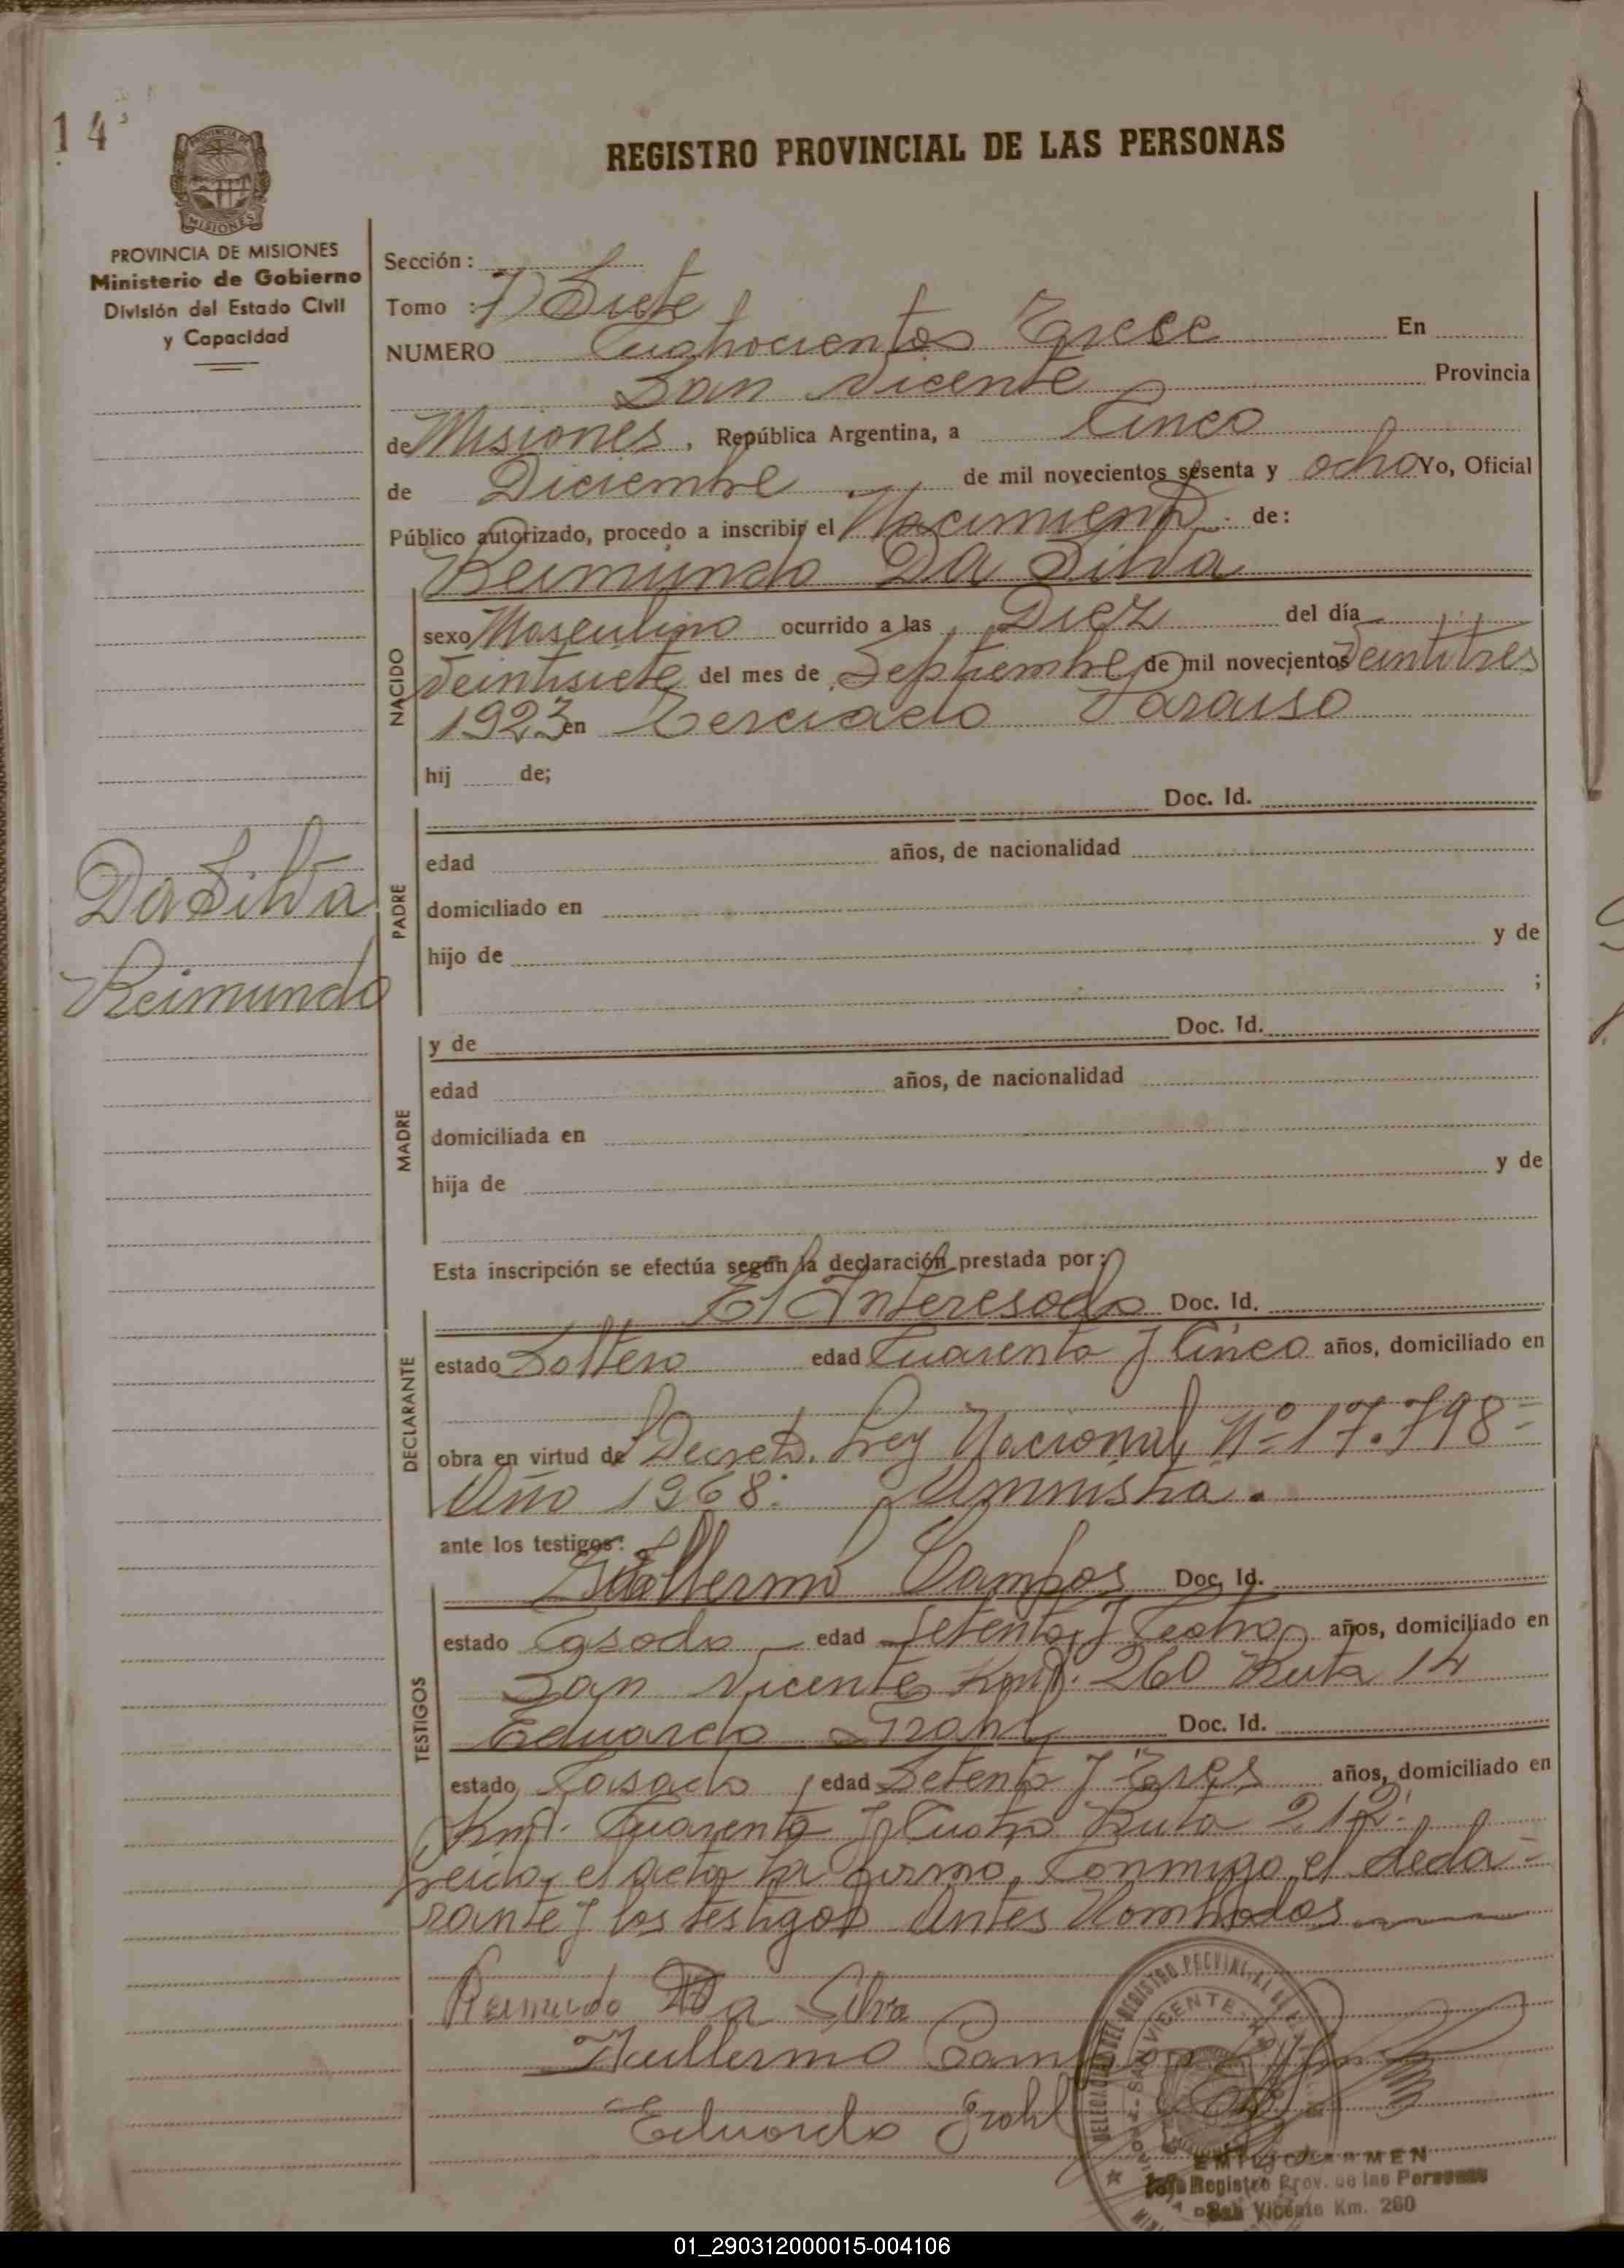 14
REGISTRO PROVINCIAL DE LAS PERSONAS
PROVINCIA DE
MISIONES
PROVINCIA DE MISIONES
Ministerio de Gobierno
División del Estado Civil
y Capacidad
Sección :
Tomo : 7) Siete
NUMERO Cuatrocientos Trece En
San Vicente Provincia
de Misiones, República Argentina, a Cinco
de Diciembre de mil novecientos sesenta y ocho Yo, Oficial
Público autorizado, procedo a inscribir el Nacimiento de:
Reimundo Da Silva
NACIDO
sexo Masculino ocurrido a las Diez del día
Veintisiete del mes de Septiembre de mil novecientos Veintitres
1923 en Terciado Paraiso
hij de;
Doc. Id.
PADRE
edad años, de nacionalidad
domiciliado en
hijo de y de
;
Da Silva
Reimundo
y de Doc. Id.
MADRE
edad años, de nacionalidad
domiciliada en
hija de y de
Esta inscripción se efectúa según la declaración prestada por:
El Interesado Doc. Id.
DECLARANTE
estado Soltero edad Cuarenta y Cinco años, domiciliado en
obra en virtud de Decreto. Ley Nacional Nº 17.798=
Año 1968. Amnistia.
ante los testigos:
Guillermo Campos Doc. Id.
TESTIGOS
estado Casado edad Setenta y Cuatro años, domiciliado en
San Vicente Km. 260 Ruta 14
Eduardo Grahl Doc. Id.
estado Casado, edad Setenta y Tres años, domiciliado en
Km. Cuarenta y Cuatro Ruta 212.
Leida, el acta la firma, Conmigo, el decla=
rante y los testigos Antes Nombrados
Reimundo Da Silva
Guillermo Campos
Eduardo Grohl
DELEGACION DEL REGISTRO PROVINCIAL DE
SAN VICENTE
Registro Prov. de las Personas
San Vicente Km. 260
01_290312000015-004106